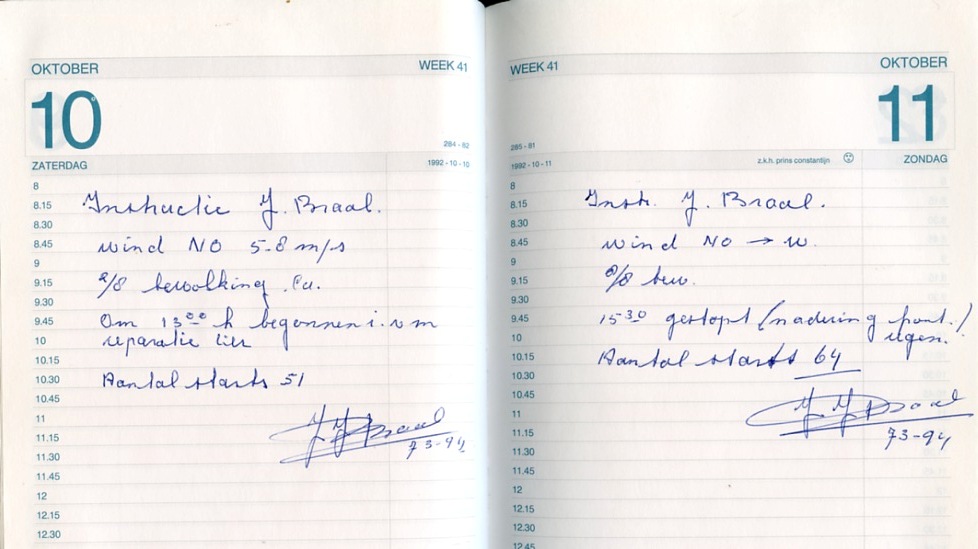 OKTOBER WEEK 41
10
284 - 82
ZATERDAG 1992 - 10 - 10
8
8.15 Instructie J. Braal.
8.30
8.45 wind NO 5-8 m/s
9
9.15 2/8 bewolking Cu.
9.30
9.45 Om 13⁰⁰ h begonnen i.v.m
10 reparatie lier
10.15
10.30 Aantal starts 51
10.45
11
11.15 J J Braal
11.30 73-94
11.45
12
12.15
12.30
WEEK 41 OKTOBER
11
285 - 81
1992 - 10 - 11 z.k.h. prins constantijn ZONDAG
8
8.15 Instr. J. Braal.
8.30
8.45 wind NO → w.
9
9.15 /8 bew.
9.30
9.45 15³⁰ gestopt (nadering front./
10 regen.!
10.15 Aantal starts 64
10.30
10.45
11 J J Braal
11.15 73-94
11.30
11.45
12
12.15
12.30
12.45